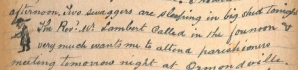 afternoon, Two swaggers are sleeping in big shed tonight
The Revd. Mr Lambert Called in the forenoon &
very much wants me to attend parishioners
meeting tomorrow night at Ormondville.